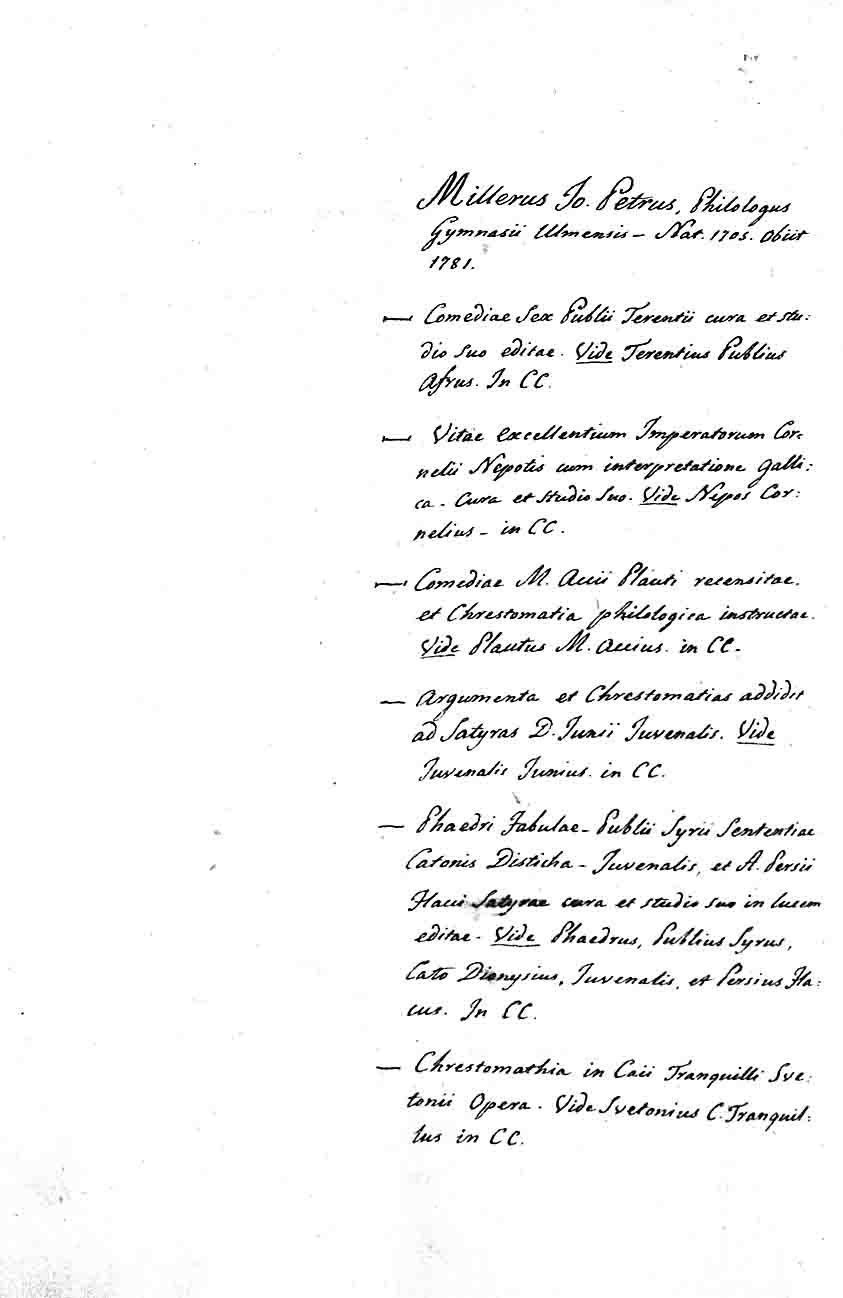 Millerus Jo. Petrus, Philologus
Gymnasii Ulmensis - Nat. 1705. Obiit
1781.
— Comediae Sex Publii Terentii cura et stu:
dio suo editae. Vide Terentius Publius
Afrus. In CC.
— Vitae excellentium Imperatorum Cor:
nelii Nepotis cum interpretatione galli:
ca - Cura et studio suo. Vide Nepos Cor:
nelius - in CC.
— Comediae M. Accii Plauti recensitae.
et Chrestomatia philologica instructae.
Vide Plautus M. Accius. in CC.
— Argumenta et Chrestomatias addidit
ad Satyras D. Junii Juvenalis. Vide
Juvenalis Junius. in CC.
— Phaedri Fabulae - Publii Syrii Sententiae
Catonis Disticha - Juvenalis, et A. Persii
Flacci Satyrae cura et studio suo in lucem
editae - Vide Phaedrus, Publius Syrus,
Cato Dionysius, Juvenalis, et Persius Fla:
cus. In CC.
— Chrestomathia in Caii Tranquilli Sve:
tonii Opera. Vide Svetonius C. Tranquil:
lus in CC.